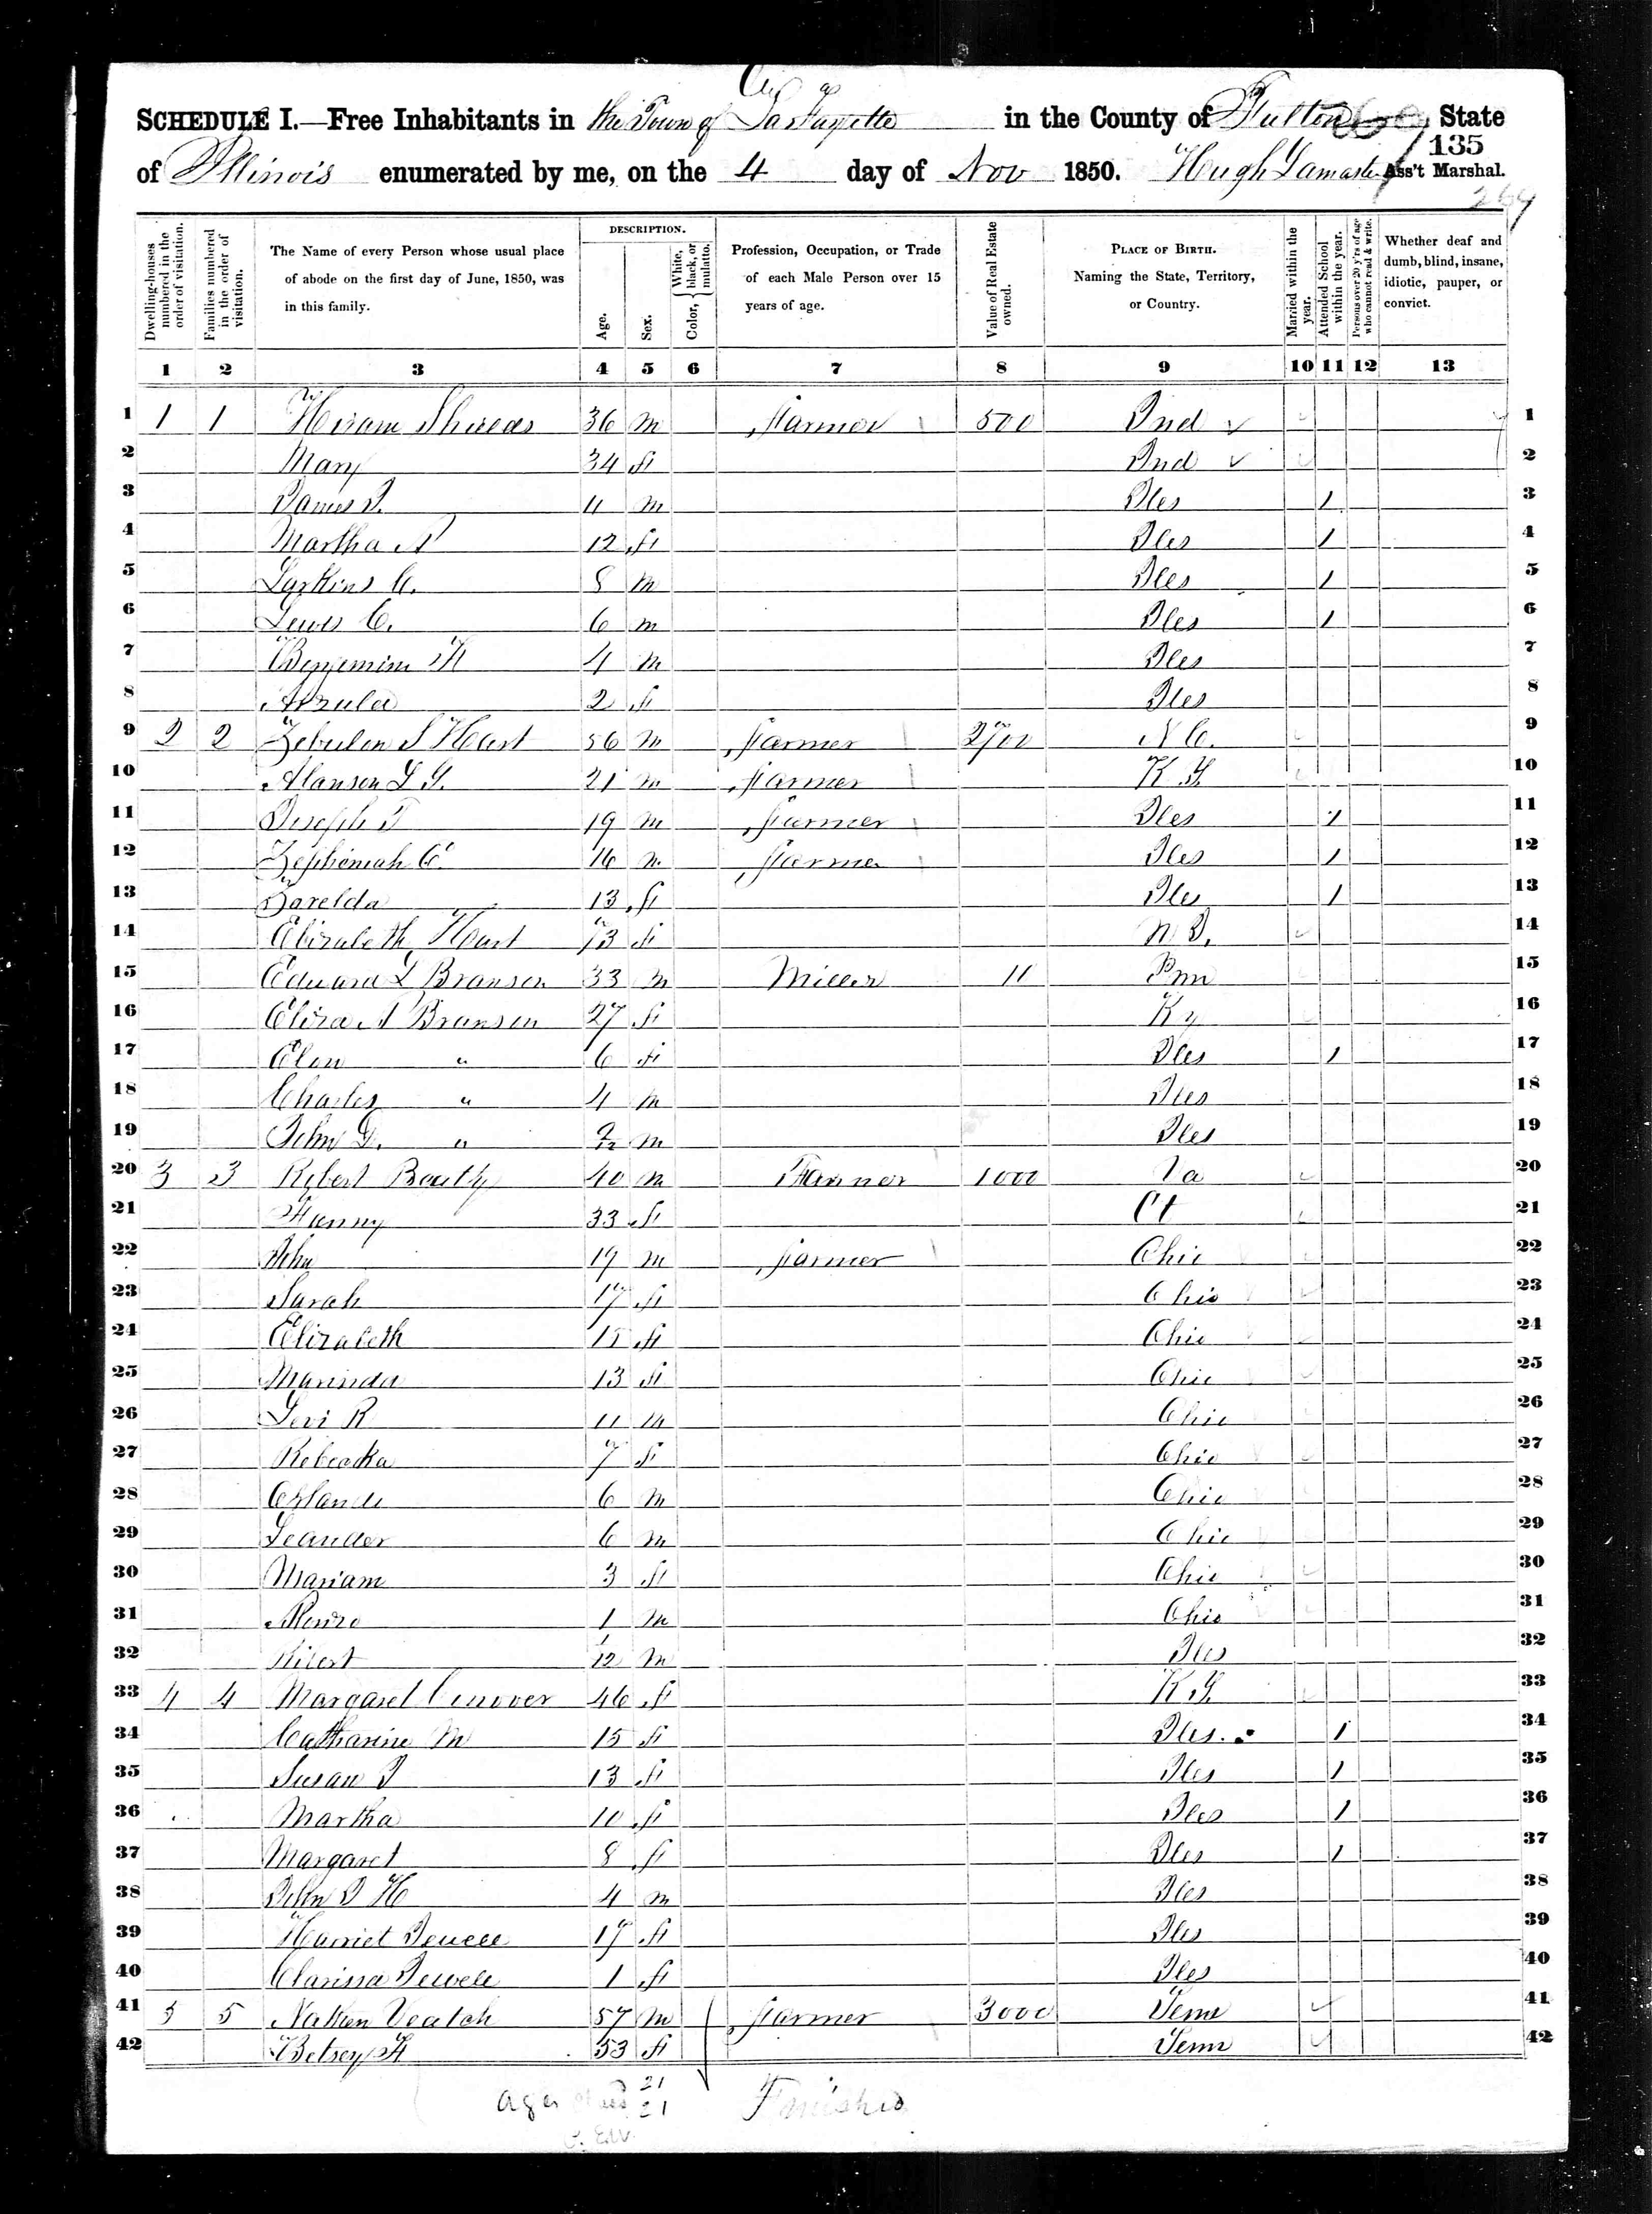 SCHEDULE I.—Free Inhabitants in the Town of LaFayette in the County of Fulton State
of Illinois enumerated by me, on the 4 day of Nov 1850. Hugh Lamaster Ass't Marshal.
135
269
Dwelling-houses numbered in the order of visitation.
Families numbered in the order of visitation.
The Name of every Person whose usual place of abode on the first day of June, 1850, was in this family.
DESCRIPTION.
Age.
Sex.
Color, { White, black, or mulatto.
Profession, Occupation, or Trade of each Male Person over 15 years of age.
Value of Real Estate owned.
PLACE OF BIRTH. Naming the State, Territory, or Country.
Married within the year.
Attended School within the year.
Persons over 20 y'rs of age who cannot read & write.
Whether deaf and dumb, blind, insane, idiotic, pauper, or convict.
1 2 3 4 5 6 7 8 9 10 11 12 13
1 1 1 Hiram 36 m Farmer 500 Ind 1
2 Mary 34 f Ind 2
3 James J. 11 m Iles 1 3
4 Martha A 12 f Iles 1 4
5 Larkins C. 8 m Iles 1 5
6 Lewis C. 6 m Iles 1 6
7 Benjemim H 4 m Iles 7
8 2 f Iles 8
9 2 2 Zebulon S Hart 56 m Farmer 2700 N C. 9
10 Alanson L G. 21 m Farmer K Y 10
11 Joseph T 19 m Farmer Iles 1 11
12 Zephemiah C. 16 m Farmer Iles 1 12
13 Zarelda 13 f Iles 1 13
14 Elizabeth Hart 73 f N J. 14
15 Edward L Bransen 33 m Miller 11 Pnn 15
16 Eliza A Bransen 27 f Ky 16
17 Elen " 6 f Iles 1 17
18 Charles " 4 m Iles 18
19 John D. " m Iles 19
20 3 3 Robert Beatty 40 m Farmer 1000 Va 20
21 Fanny 33 f Ct 21
22 John 19 m Farmer Ohio 22
23 Sarah 17 f Ohio 23
24 Elizabeth 15 f Ohio 24
25 Marinda 13 f Ohio 25
26 Levi R 11 m Ohio 26
27 Rebecka 7 f Ohio 27
28 Orlando 6 m Ohio 28
29 Leander 6 m Ohio 29
30 Mariam 3 f Ohio 30
31 Alonzo 1 m Ohio 31
32 1/12 m Iles 32
33 4 4 Margaret Conover 46 f K Y 33
34 Catharine M 15 f Iles. 1 34
35 Susan J 13 f Iles 1 35
36 Martha 10 f Iles 1 36
37 Margaret 8 f Iles 1 37
38 John J H 4 m Iles 38
39 Harriet Jewell 17 f Iles 39
40 Clarissa Jewell 1 f Iles 40
41 5 5 Nathen Veatch 57 m Farmer 3000 Tenn 41
42 Betsey H 53 f Tenn 42
21
21
Ages
Finished